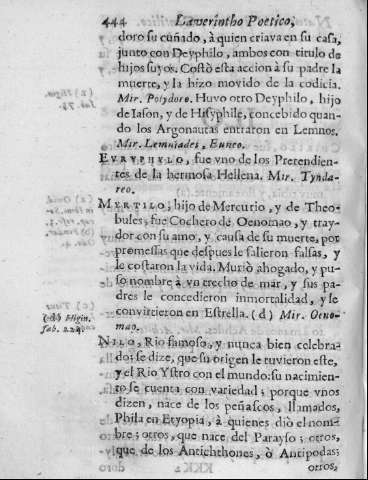 444 Lawerintho Poetico,
doro su cuñado, à quien criava en su casa,
junto con Deyphilo, ambos con titulo de
hijos suyos. Costò esta accion à su padre la
muerte, y la hizo movido de la codicia.
Mir. Polydoro. Huvo otro Deyphilo, hijo
de Iason, y de Hisyphile, concebido quan-
do los Argonautas entraron en Lemnos.
Mir. Lemniades, Euneo.
EVRYPHVLO, fue vno de los Pretendien-
tes de la hermosa Hellena. Mir. Tynda-
reo.
MYRTILO, hijo de Mercurio, y de Theo-
bules, fue Cochero de Oenomao, y tray-
dor con su amo, y causa de su muerte, por
promessas que despues le salieron falsas, y
le costaron la vida. Muriò ahogado, y pu-
so nombre à vn trecho de mar, y sus pa-
dres le concedieron inmortalidad, y le
convirtieron en Estrella. (d) Mir. Oeno-
mao.
(d) Higin.
fab. 224.
NILO, Rio famoso, y nunca bien celebra-
do; se dize, que su origen le tuvieron este,
y el Rio Ystro con el mundo: su nacimien-
to se cuenta con variedad; porque vnos
dizen, nace de los peñascos, llamados,
Phila en Etyopia, à quienes diò el nom-
bre; otros, que nace del Parayso; otros,
que de los Antichthones, ò Antipodas;
otros,